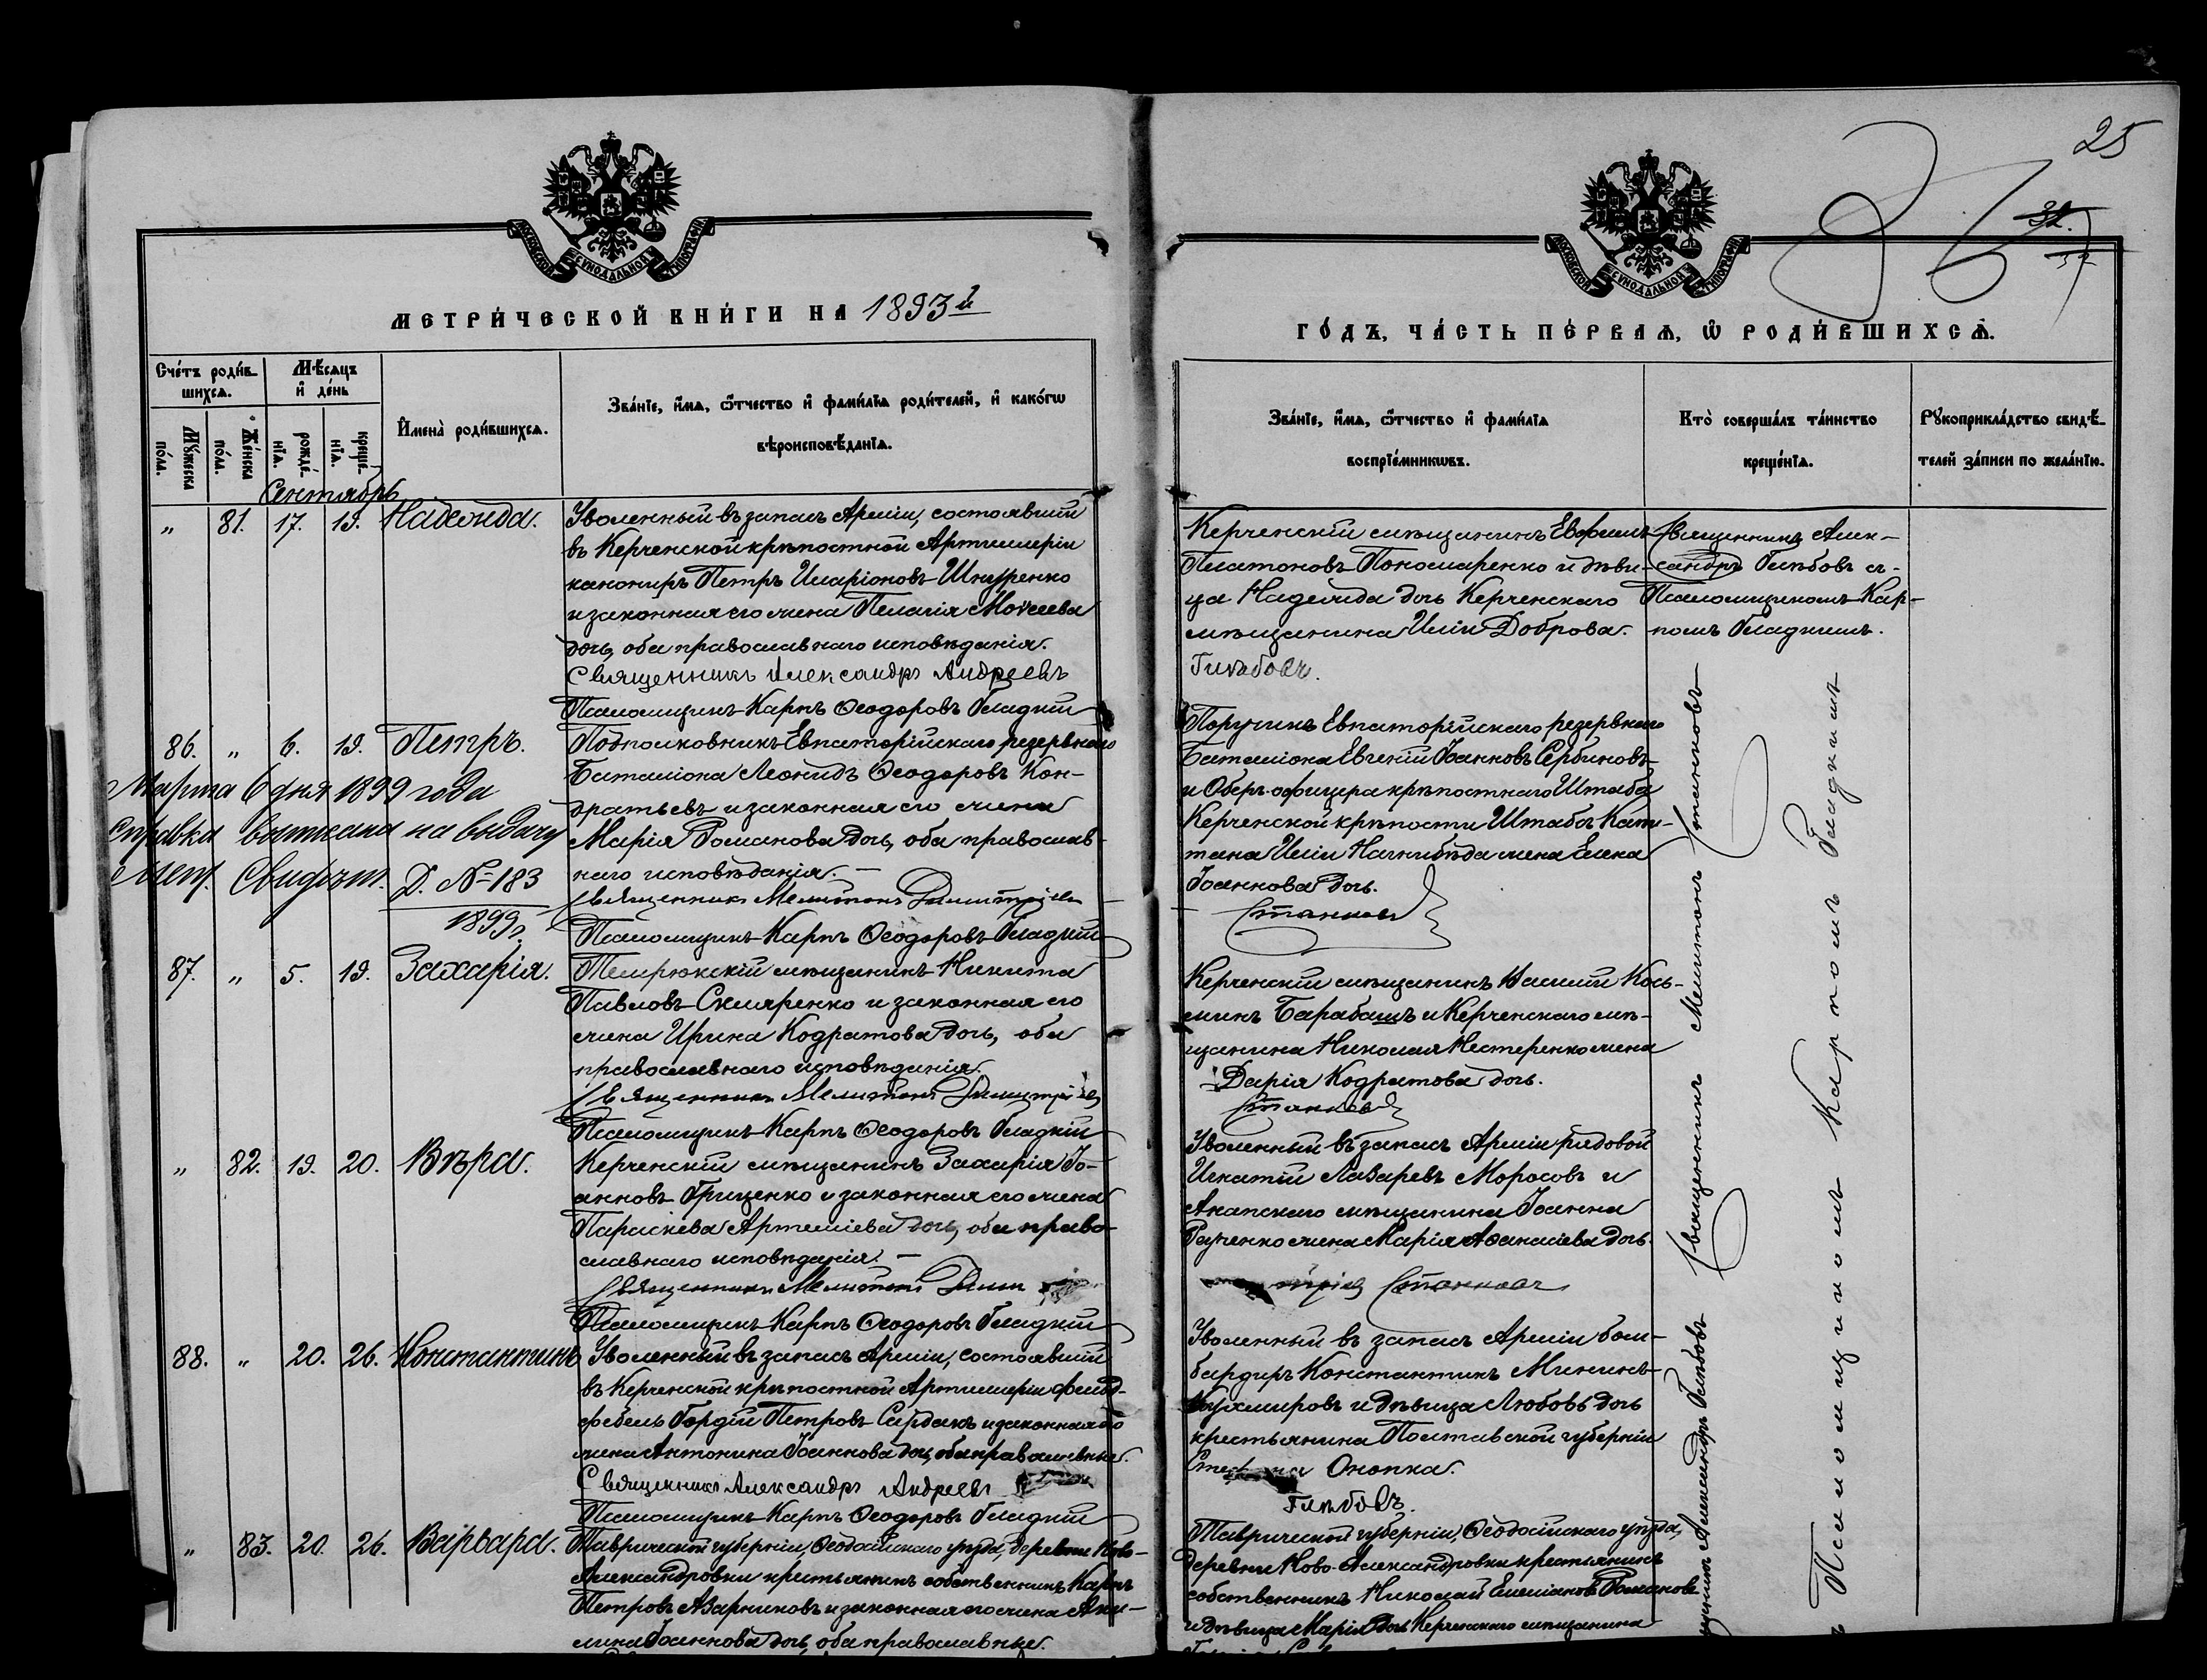 25
32.
МОСКОВСКОЙ СѴНОДАЛЬНОЙ ТИПОГРАФІИ
МОСКОВСКОЙ СѴНОДАЛЬНОЙ ТИПОГРАФІИ
МЕТРИ́ЧЕСКОЙ КНИ́ГИ НА 1893й
ГО́ДЪ, ЧА́СТЬ ПЕ́РВАѦ, Ѽ РОДИ́ВШИХСѦ.
Сче́тъ роди́в-
шихсѧ.
Мꙋ́жеска по́ла.
Же́нска по́ла.
Мѣ́сѧцъ
и҆ де́нь
рожде́-нїѧ.
креще́-нїѧ.
И҆мена̀ роди́вшихсѧ.
Зва́нїе, и҆́мѧ, ѻ҆́тчество и҆ фамѝлїѧ роди́телей, и҆ како́гѡ
вѣроисповѣ́данїѧ.
Зва́нїе, и҆́мѧ, ѻ҆́тчество и҆ фамѝлїѧ
воспрїе́мникѡвъ.
Кто̀ соверша́лъ та́инство
креще́нїѧ.
Рꙋкоприкла́дство свидѣ́-
телей за́писи по жела́нїю.
Сентябрь
" 81. 17. 19. Надежда.
Уволенный въ запасъ Арміи, состоявшій
въ Керченской крѣпостной Артиллеріи
канониръ Петръ Иларіоновъ Шкуренко
и законная его жена Пелагія Моѵсеева
дочь, оба православнаго исповѣданія.
Священникъ Александръ Андреевъ
Псаломщикъ Карпъ Ѳеодоровъ Гладкій
Керченскій мѣщанинъ Евфимъ
Платоновъ Пономаренко и дѣви-
ца Надежда дочь Керченскаго
мѣщанина Иліи Доброва.
Глѣбовъ.
Священникъ Алек-
сандръ Глѣбовъ съ
Псаломщикомъ Кар-
помъ Гладкимъ.
86. " 6. 19. Петръ.
Марта 6 дня 1899 года
справка выткана на выдачу
Метр. Свидѣт. Д. № 183
1899 г.
Подполковникъ Евпаторійскаго резервнаго
Баталіона Леонидъ Ѳеодоровъ Кон-
дратьевъ и законная его жена
Марія Романова дочь, оба православ-
наго исповѣданія. —
Священникъ Мелитонъ Димитріевъ
Псаломщикъ Карпъ Ѳеодоровъ Гладкій
Поручикъ Евпаторійскаго резервнаго
Баталіона Евгеній Іоанновъ Сербиновъ
и Оберъ-офицера крѣпостнаго Штаба
Керченской крѣпости Штабсъ Капи-
тана Иліи Нагнибѣда жена Елена
Іоаннова дочь.
Станковъ
87. " 5. 19. Захарія.
Темрюкскій мѣщанинъ Никита
Павловъ Скляренко и законная его
жена Ирина Кодратова дочь, оба
православнаго исповѣданія.
Священникъ Мелитонъ Димитріевъ
Псаломщикъ Карпъ Ѳеодоровъ Гладкій
Керченскій мѣщанинъ Василій Кось-
минъ Барабашъ и Керченскаго мѣ-
щанина Николая Нестеренко жена
Дарія Кодратова дочь.
Станковъ
" 82. 19. 20. Вѣра.
Керченскій мѣщанинъ Захарія Іо-
анновъ Гриценко и законная его жена
Параскева Артеміева дочь, оба право-
славнаго исповѣданія. —
Священникъ Мелитонъ Дими
Псаломщикъ Карпъ Ѳеодоровъ Гладкій
Уволенный въ запасъ Арміи рядовой
Игнатій Лазаревъ Моросовъ и
Анапскаго мѣщанина Іоанна
жена Марія Аѳанасіева дочь.
тріевъ Станковъ
88. " 20. 26. Константинъ
Уволенный въ запасъ Арміи, состоявшій
въ Керченской крѣпостной Артиллеріи фельд-
фебель Гордій Петровъ и законная его
жена Антонина Іоаннова дочь, оба православные.
Священникъ Александръ Андреевъ
Псаломщикъ Карпъ Ѳеодоровъ Гладкій
Уволенный въ запасъ Арміи бом-
бардиръ Константинъ Мининъ
и дѣвица Любовь дочь
крестьянина Полтавской губерніи
Онопка.
Глѣбовъ.
" 83. 20. 26. Варвара.
Таврической губерніи, Ѳеодосійскаго уѣзда, деревни Ново-
Александровки крестьянинъ собственникъ Карпъ
Петровъ Азарниковъ и законная его жена Аки-
лина Іоаннова дочь, оба православные.
Таврической губерніи, Ѳеодосійскаго уѣзда,
деревни Ново-Александровки крестьянинъ
собственникъ Николай Емеліановъ Романовъ
и дѣвица Марія дочь Керченскаго мѣщанина
Священникъ Мелитонъ Станковъ
Александръ Глѣбовъ
Псаломщикомъ Карпомъ Гладкимъ